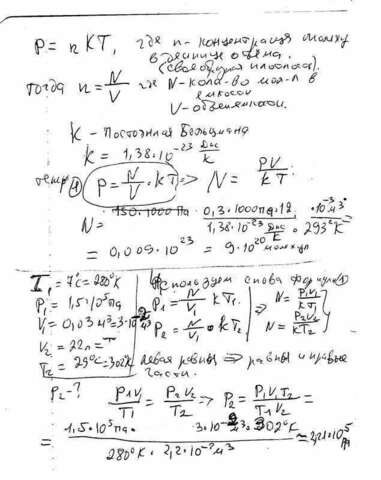 P = nKT, где n - концентрация молку
в единице объема.
(своеобразн плотность).
тогда n = N/V где N - кол-во мол-л в
емкости
V - объем емкости.
K - Постоянная Больцмана
k = 1,38·10⁻²³ Дж/К
теперь ① P = N/V · kT => N = PV/kT
N = 0,3·1000Па·12·10⁻³м³ / 1,38·10⁻²³ Дж/К · 293°K =
= 0,009·10²³ = 9·10²⁰ молкул
T₁ = 7°C = 280°K
P₁ = 1,5·10⁵Па
V₁ = 0,03 м³ = 3·10⁻²м³
V₂ = 22л
T₂ = 29°C = 302°K
P₂ - ?
Используем снова формулу (1)
P₁ = N/V₁ kT₁ => N = P₁V₁/kT₁
P₂ = N/V₂ · kT₂ N = P₂V₂/kT₂
левая равны => равны и правые
части.
P₁V₁/T₁ = P₂V₂/T₂ => P₂ = P₁V₁T₂/T₁V₂ =
= 1,5·10⁵Па · 3·10⁻²м³ · 302°K / 280°K · 2,2·10⁻²м³ ≈ 2,21·10⁵ Па